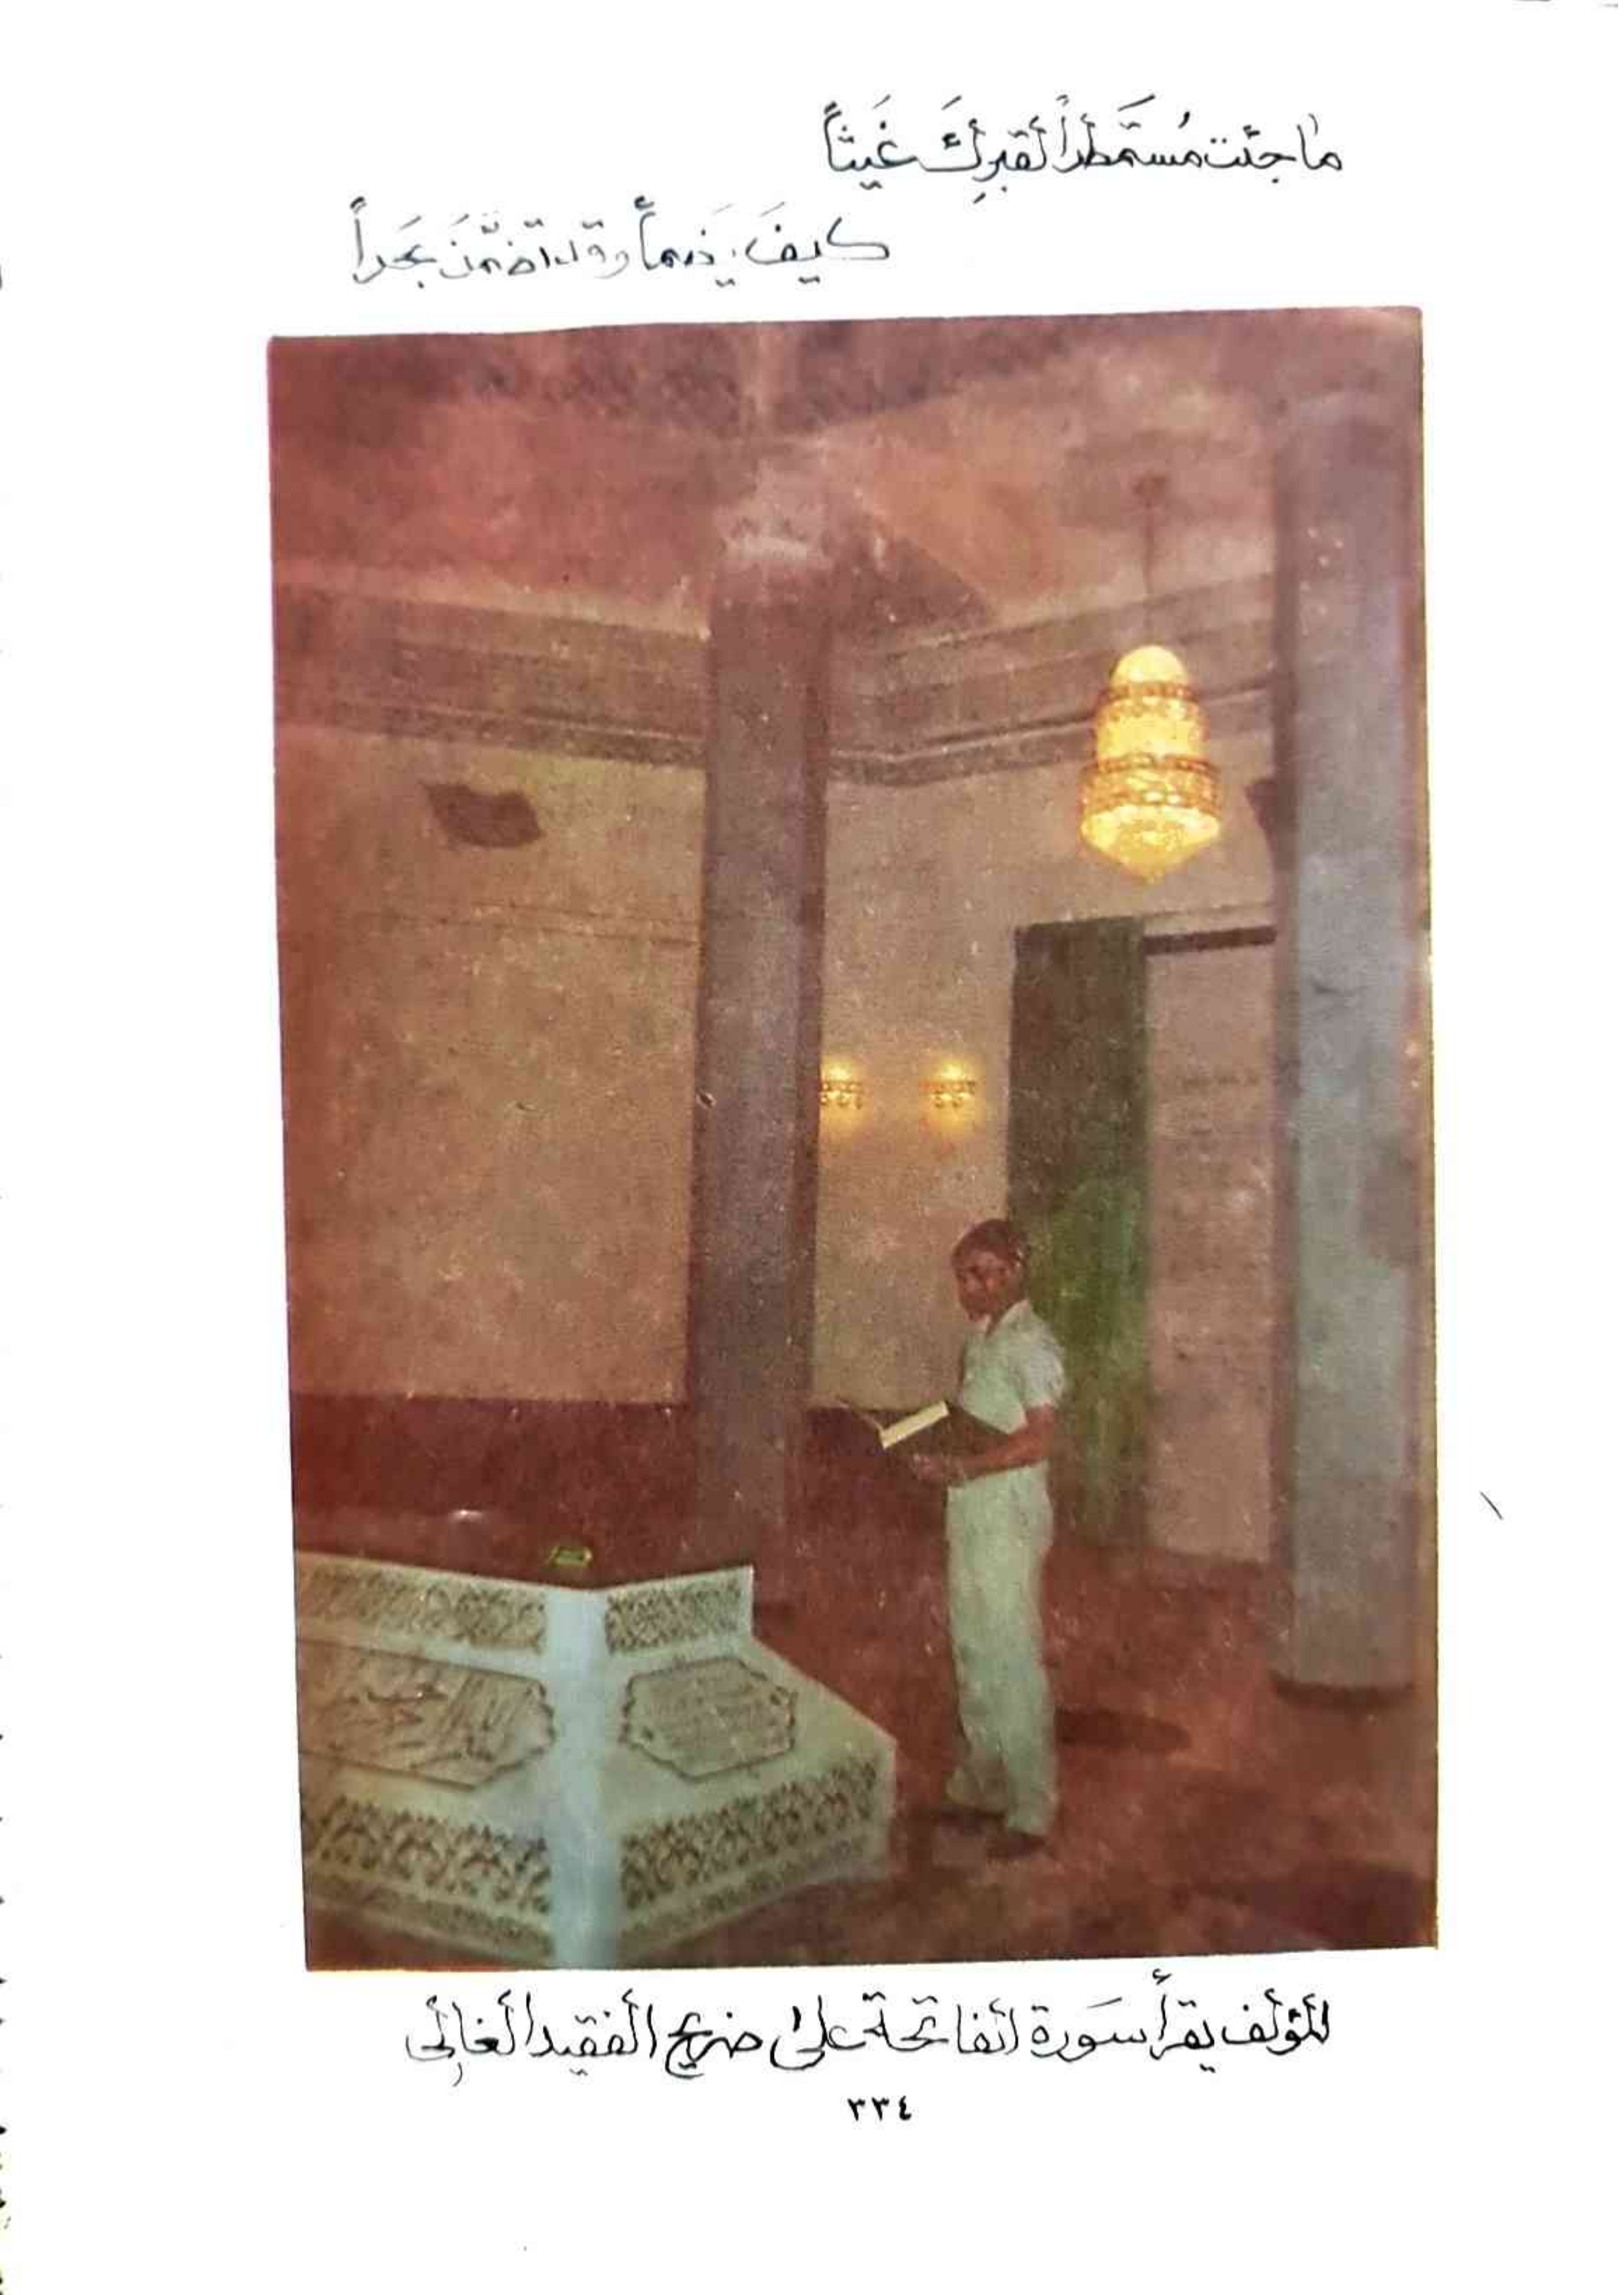 ما جئت مُستَمطراً لقبرِكَ غَيثاً
كيفَ يَضمأُ وقد تضمَّنَ بَحراً
المؤلف يقرأ سَورة الفاتحة على ضريح الفقيد الغالي
٣٣٤